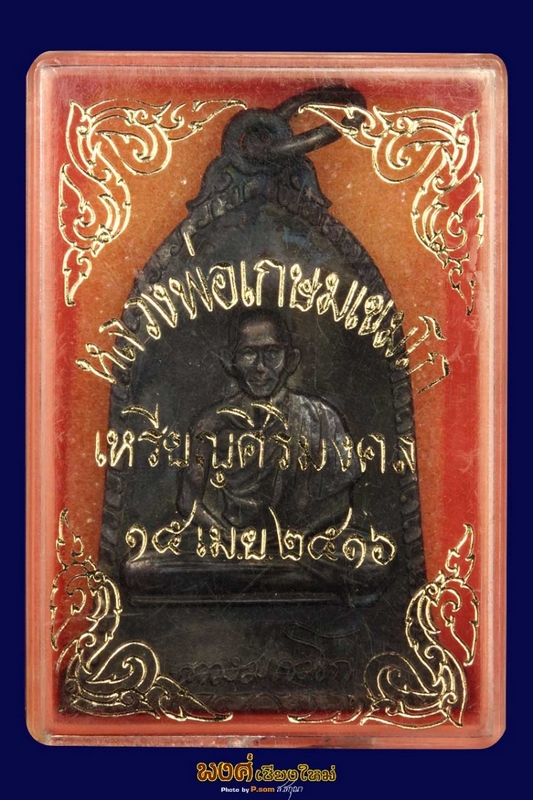 หลวงพ่อเกษมเขมโก
เหรียญศิริมงคล
๑๕ เม.ย. ๒๕๑๖
พงศ์เชียงใหม่
Photo by P.som